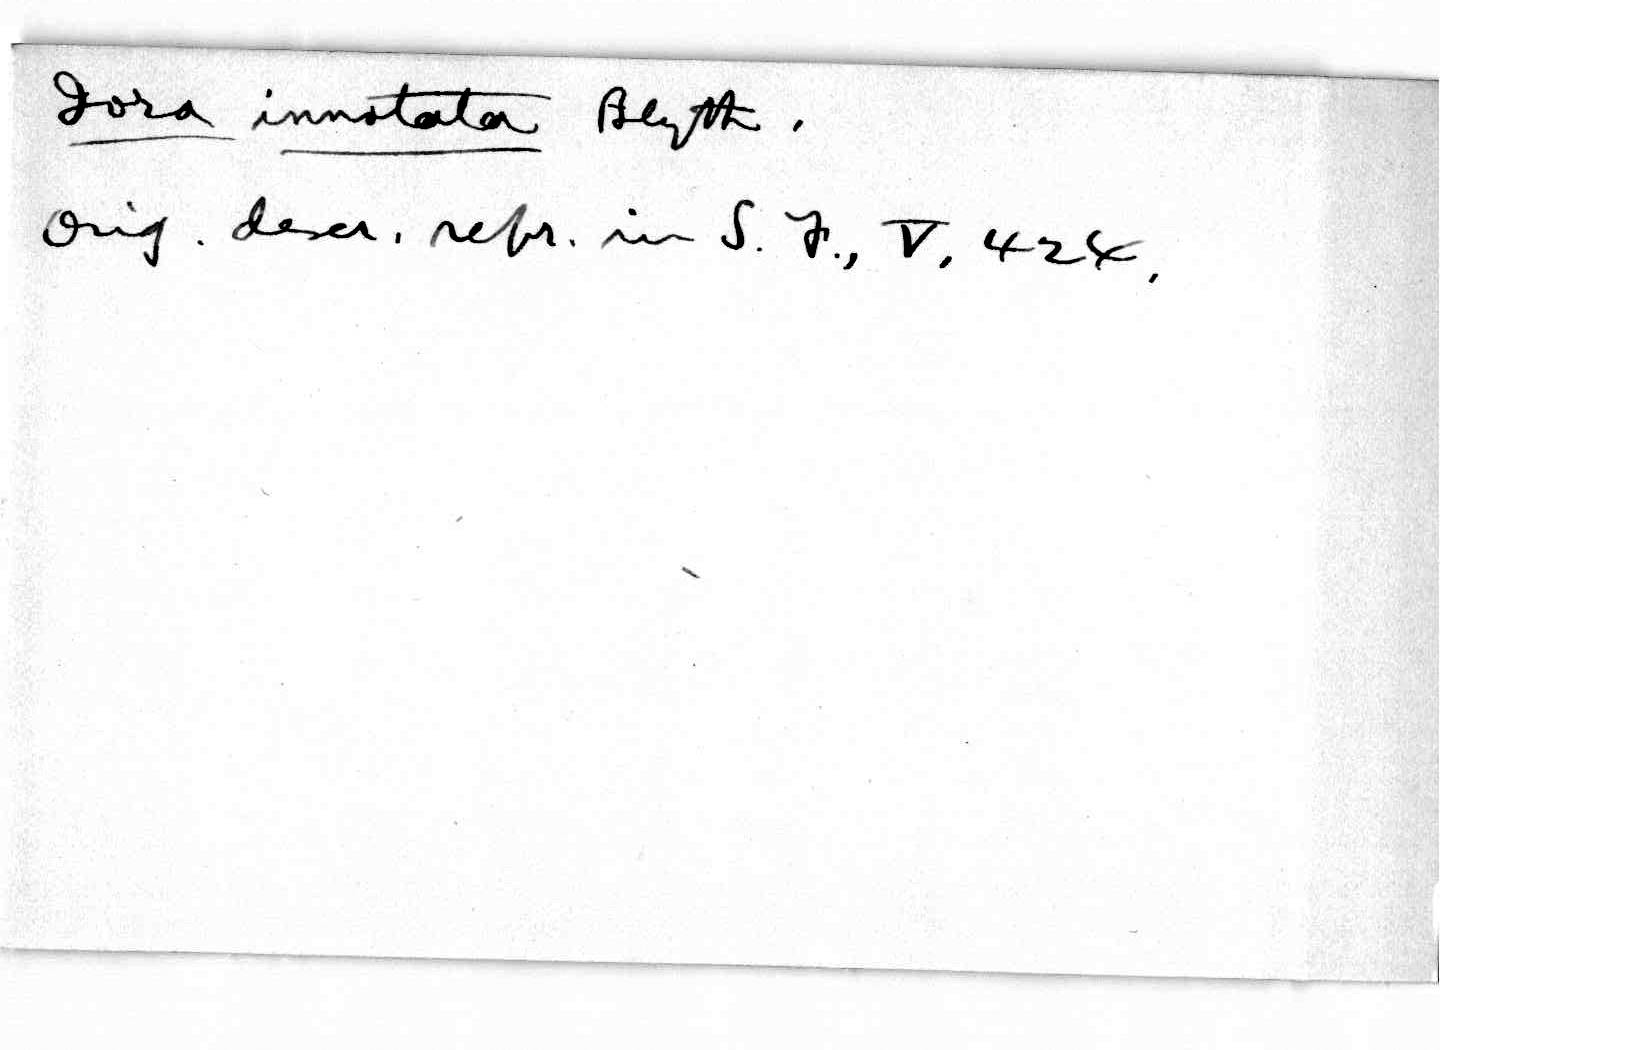 Iora innotata Blyth.
Orig. descr. repr. in S. F., V, 424.